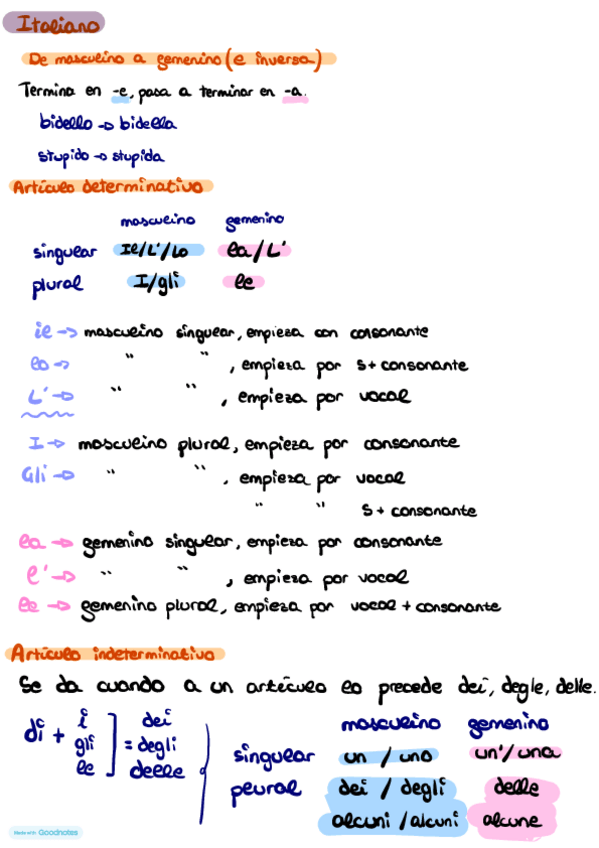 Italiano
De masculino a femenino (e inversa)
Termina en -e, pasa a terminar en -a.
bidello → bidella
stupido → stupida
Artículo determinativo
masculino femenino
singular Il/L'/Lo la/L'
plural I/gli le
il → masculino singular, empieza con consonante
lo → " " , empieza por s+consonante
L' → " " , empieza por vocal
I → masculino plural, empieza por consonante
Gli → " " , empieza por vocal
" " s+consonante
la → femenino singular, empieza por consonante
l' → " " , empieza por vocal
le → femenino plural, empieza por vocal + consonante
Artículo indeterminativo
Se da cuando a un artículo lo precede dei, degle, delle.
di + i = dei
gli = degli
le delle
masculino femenino
singular un / uno un'/una
plural dei / degli delle
alcuni / alcuni alcune
Made with Goodnotes